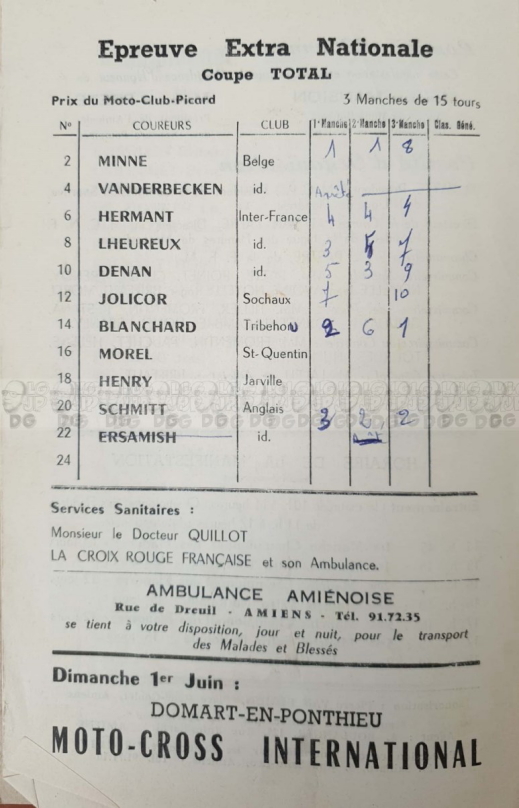 Epreuve Extra Nationale
Coupe TOTAL
Prix du Moto-Club-Picard 3 Manches de 15 tours
No COUREURS CLUB 1e Manche 2e Manche 3e Manche Clas. Géné.
2 MINNE Belge 1 1 8
4 VANDERBECKEN id.
6 HERMANT Inter-France 4 4 4
8 LHEUREUX id. 3 7
10 DENAN id. 5 3 9
12 JOLICOR Sochaux 7 10
14 BLANCHARD Tribehou 2 6 1
16 MOREL St-Quentin
18 HENRY Jarville
20 SCHMITT Anglais 3 2 2
22 ERSAMISH id.
24
Services Sanitaires :
Monsieur le Docteur QUILLOT
LA CROIX ROUGE FRANÇAISE et son Ambulance.
AMBULANCE AMIÉNOISE
Rue de Dreuil - AMIENS - Tél. 91.72.35
se tient à votre disposition, jour et nuit, pour le transport
des Malades et Blessés
Dimanche 1er Juin :
DOMART-EN-PONTHIEU
MOTO-CROSS INTERNATIONAL